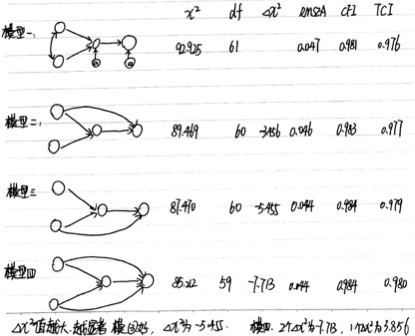 x² df Δx² RMSEA CFI TCI
模型一. 92.925 61 0.047 0.981 0.976
模型二. 89.469 60 -3.456 0.046 0.983 0.977
模型三 87.470 60 -5.455 0.044 0.984 0.979
模型四 85.212 59 -7.713 0.044 0.984 0.980
Δx²值越大,越显著 模型 Δx²为-5.455. 模四. 2个Δx²为-7.713, 1个Δx²为3.856